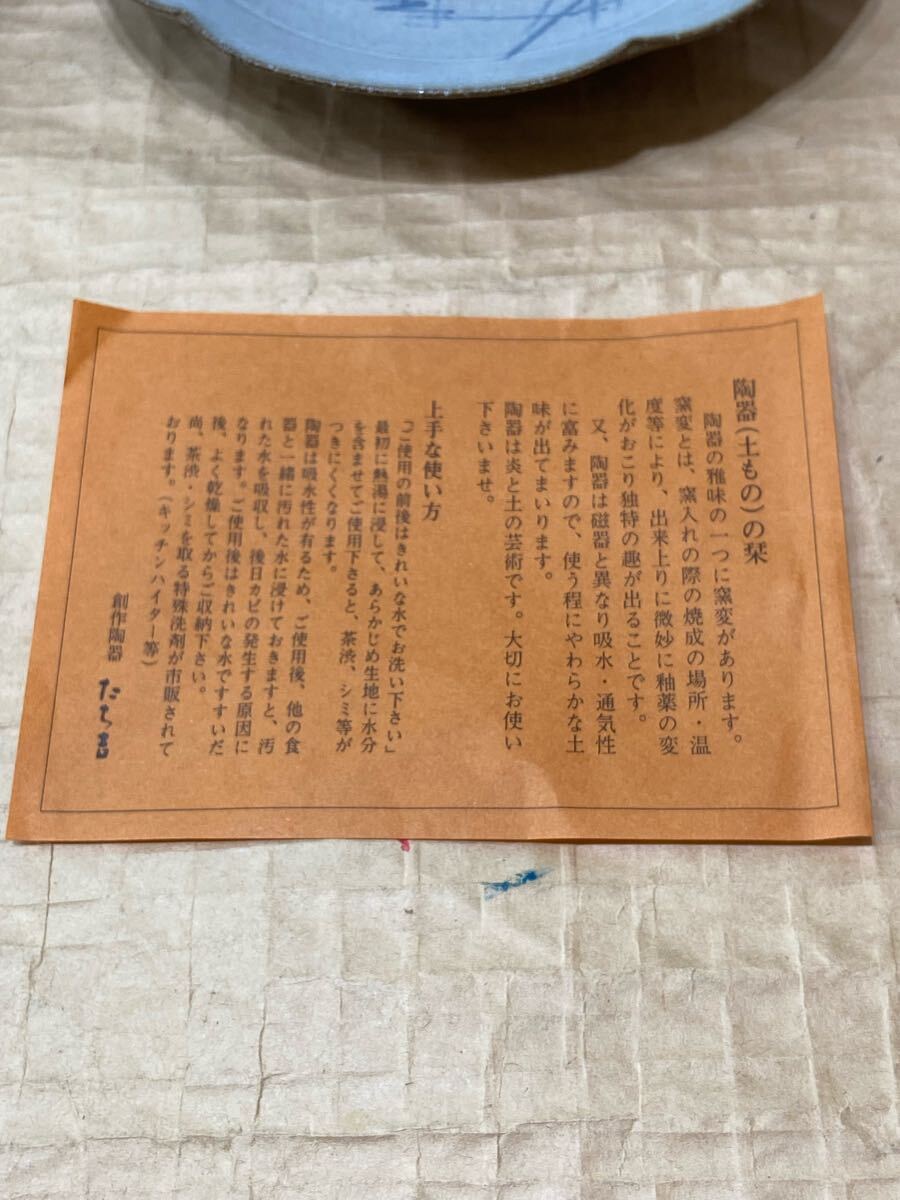 陶器(土もの)の栞
陶器の雅味の一つに窯変があります。
窯変とは、窯入れの際の焼成の場所・温
度等により、出来上りに微妙に釉薬の変
化がおこり独特の趣が出ることです。
又、陶器は磁器と異なり吸水・通気性
に富みますので、使う程にやわらかな土
味が出てまいります。
陶器は炎と土の芸術です。大切にお使い
下さいませ。
上手な使い方
「ご使用の前後はきれいな水でお洗い下さい」
最初に熱湯に浸して、あらかじめ生地に水分
を含ませてご使用下さると、茶渋、シミ等が
つきにくくなります。
陶器は吸水性が有るため、ご使用後、他の食
器と一緒に汚れた水に浸けておきますと、汚
れた水を吸収し、後日カビの発生する原因に
なります。ご使用後はきれいな水ですすいだ
後、よく乾燥してからご収納下さい。
尚、茶渋・シミを取る特殊洗剤が市販されて
おります。(キッチンハイター等)
創作陶器 たち吉